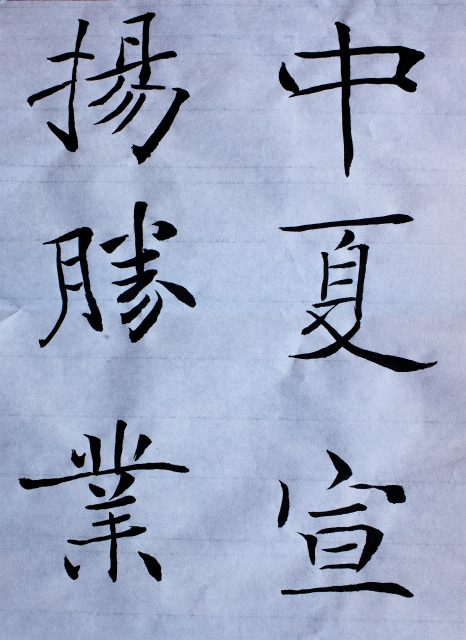 中夏宣
揚勝業